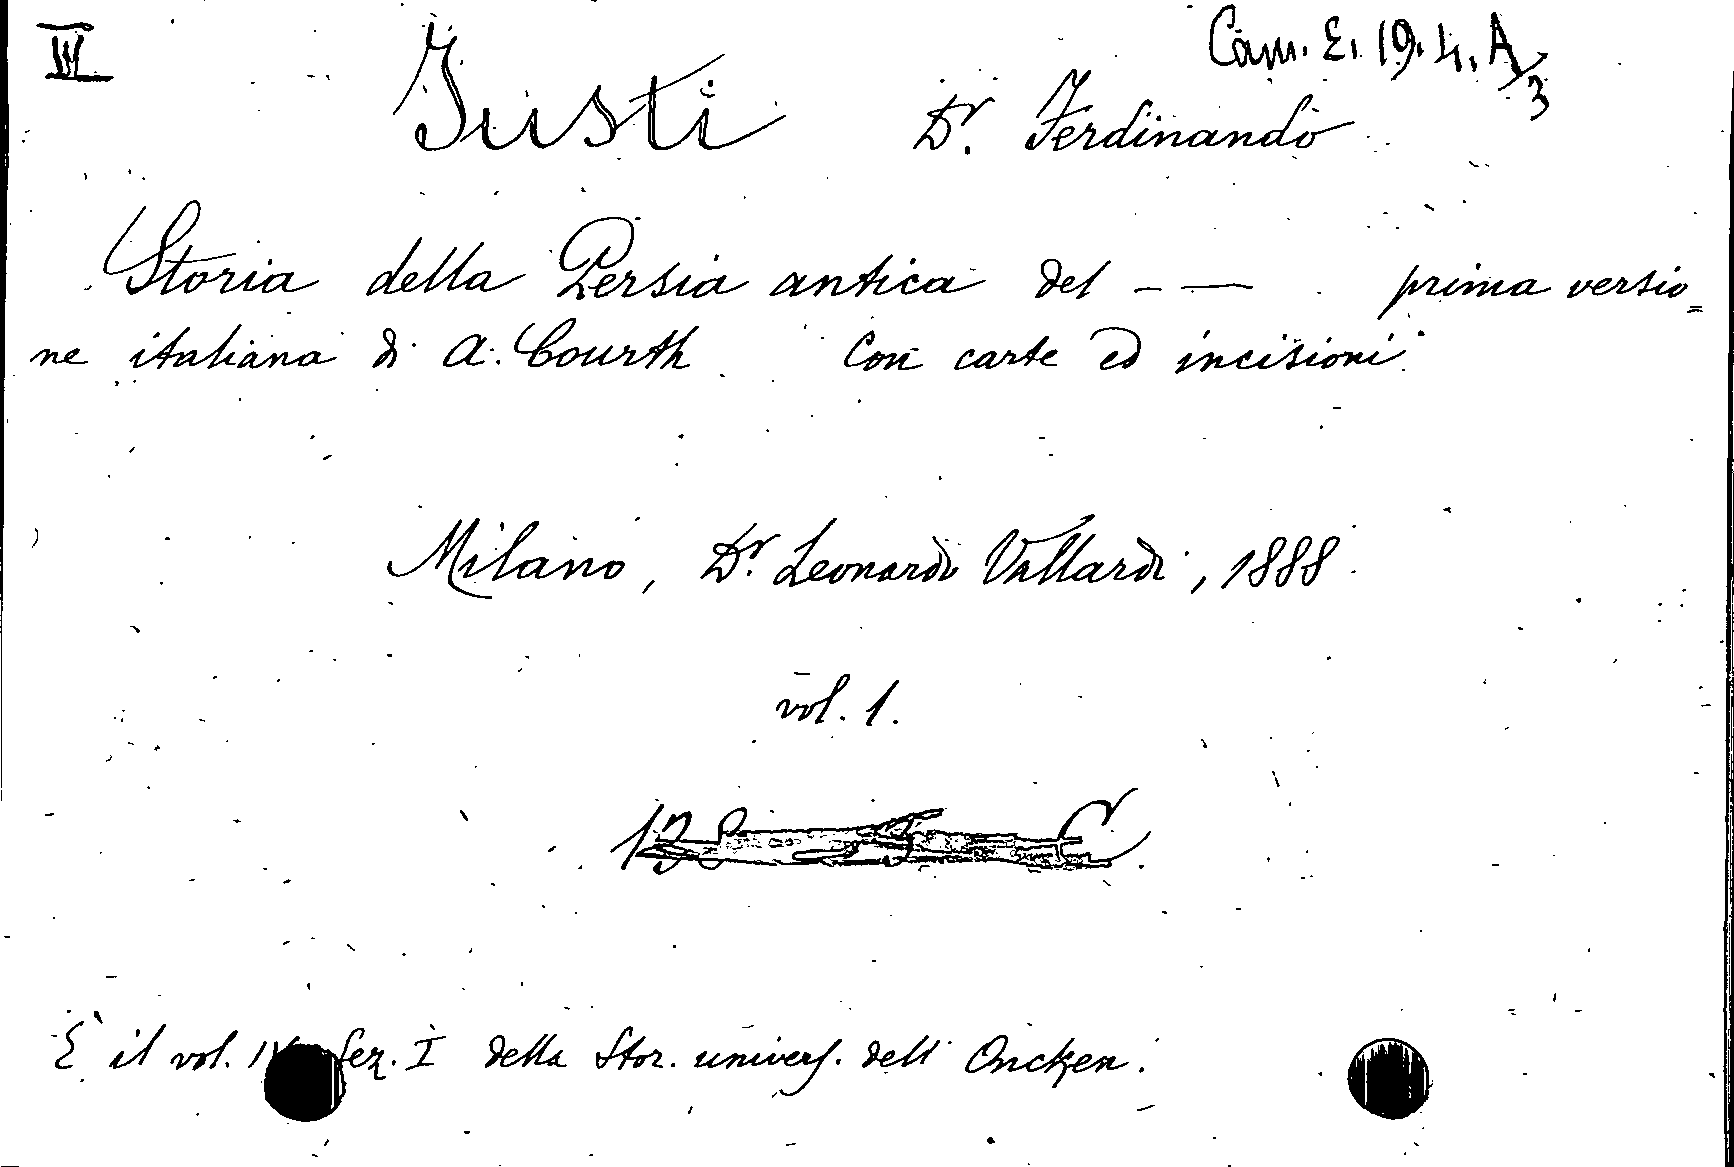 III Cam. E. 19. 4. A/3
Justi Dr. Ferdinando
Storia della Persia antica del - — prima versio=
ne italiana di A. Courth Con carte ed incisioni
Milano, Dr. Leonardo Vallardi, 1888
vol. 1.
È il vol. IV sez. I della Stor. univers. dell' Oncken.